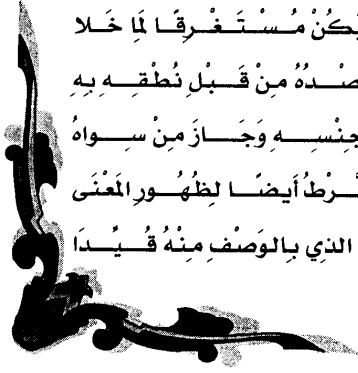 يكُنْ مُسْتَغْرِقًا لَمَا خَلا
صْدُهُ مِنْ قَبْلِ نُطْقِهِ بِهِ
جِنْسِهِ وَجَازَ مِنْ سِوَاهُ
ـرْطُ أَيضًا لِظُهُورِ المَعْنَى
الذي بِالوَصْفِ مِنْهُ قُيِّدَا